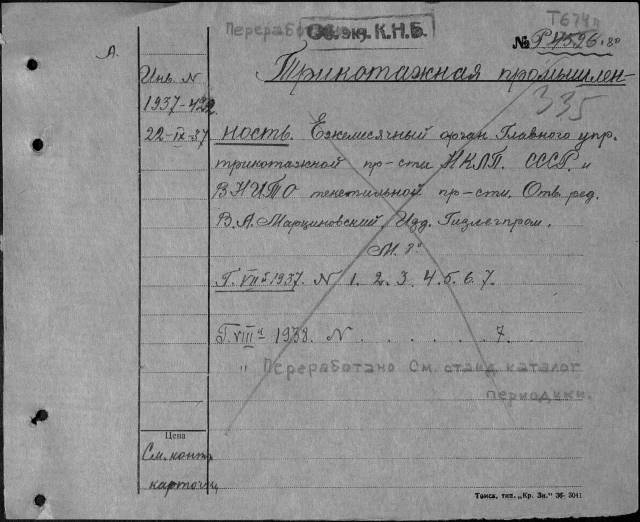 Переработано
Об. экз. К.Н.Б.
Т674п
№ Р4526. 8°
А.
Трикотажная промышлен-
335
Инв. N
1937-422
22-IX-37
ность. Ежемисячный орган Главного упр.
трикотажной пр-сти НКЛП. СССР. и
ВНИТО текстильной пр-сти. Отв. ред.
В.А. Марциновский. Изд. Гизлегпром.
М. 8°
Г. VII й 1937. N 1. 2. 3. 4. 5. 6. 7.
Г. VIII й 1938. N . . . . . . 7.
" Переработано См. станд. каталог
периодики.
Цена
См. конт.
карточку
Томск, тип. „Кр. Зн." 36- 3041